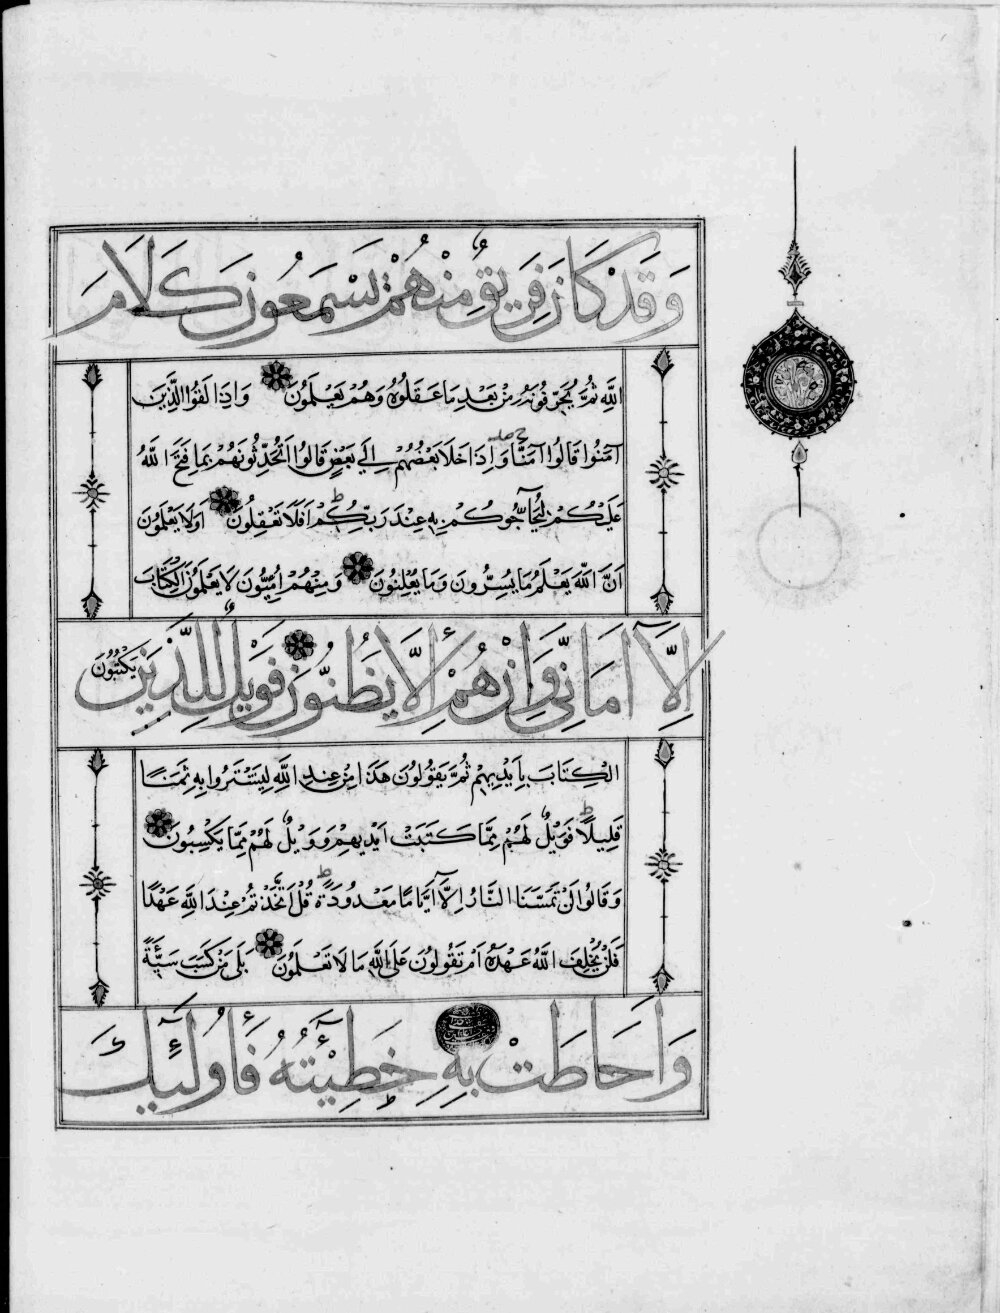 وَقَدْ كَانَ فَرِيقٌ مِنْهُمْ يَسْمَعُونَ كَلَامَ
اللَّهِ ثُمَّ يُحَرِّفُونَهُ مِنْ بَعْدِ مَا عَقَلُوهُ وَهُمْ يَعْلَمُونَ وَاِذَا لَقُوا الَّذِينَ
آمَنُوا قَالُوا آمَنَّا وَاِذَا خَلَا بَعْضُهُمْ اِلَى بَعْضٍ قَالُوا اَتُحَدِّثُونَهُمْ بِمَا فَتَحَ اللَّهُ
عَلَيْكُمْ لِيُحَآجُّوكُمْ بِهِ عِنْدَ رَبِّكُمْ اَفَلَا تَعْقِلُونَ اَوَلَا يَعْلَمُونَ
اَنَّ اللَّهَ يَعْلَمُ مَا يُسِرُّونَ وَمَا يُعْلِنُونَ وَمِنْهُمْ اُمِّيُّونَ لَا يَعْلَمُونَ الْكِتَابَ
اِلَّآ اَمَانِيَّ وَاِنْ هُمْ اِلَّا يَظُنُّونَ فَوَيْلٌ لِلَّذِينَ يَكْتُبُونَ
الْكِتَابَ بِاَيْدِيهِمْ ثُمَّ يَقُولُونَ هَذَا مِنْ عِنْدِ اللَّهِ لِيَشْتَرُوا بِهِ ثَمَنًا
قَلِيلًا فَوَيْلٌ لَهُمْ مِمَّا كَتَبَتْ اَيْدِيهِمْ وَوَيْلٌ لَهُمْ مِمَّا يَكْسِبُونَ
وَقَالُوا لَنْ تَمَسَّنَا النَّارُ اِلَّآ اَيَّامًا مَعْدُودَةً قُلْ اَتَّخَذْتُمْ عِنْدَ اللَّهِ عَهْدًا
فَلَنْ يُخْلِفَ اللَّهُ عَهْدَهُ اَمْ تَقُولُونَ عَلَى اللَّهِ مَا لَا تَعْلَمُونَ بَلَى مَنْ كَسَبَ سَيِّئَةً
وَاَحَاطَتْ بِهِ خَطِيْئَتُهُ فَاُولَٓئِكَ